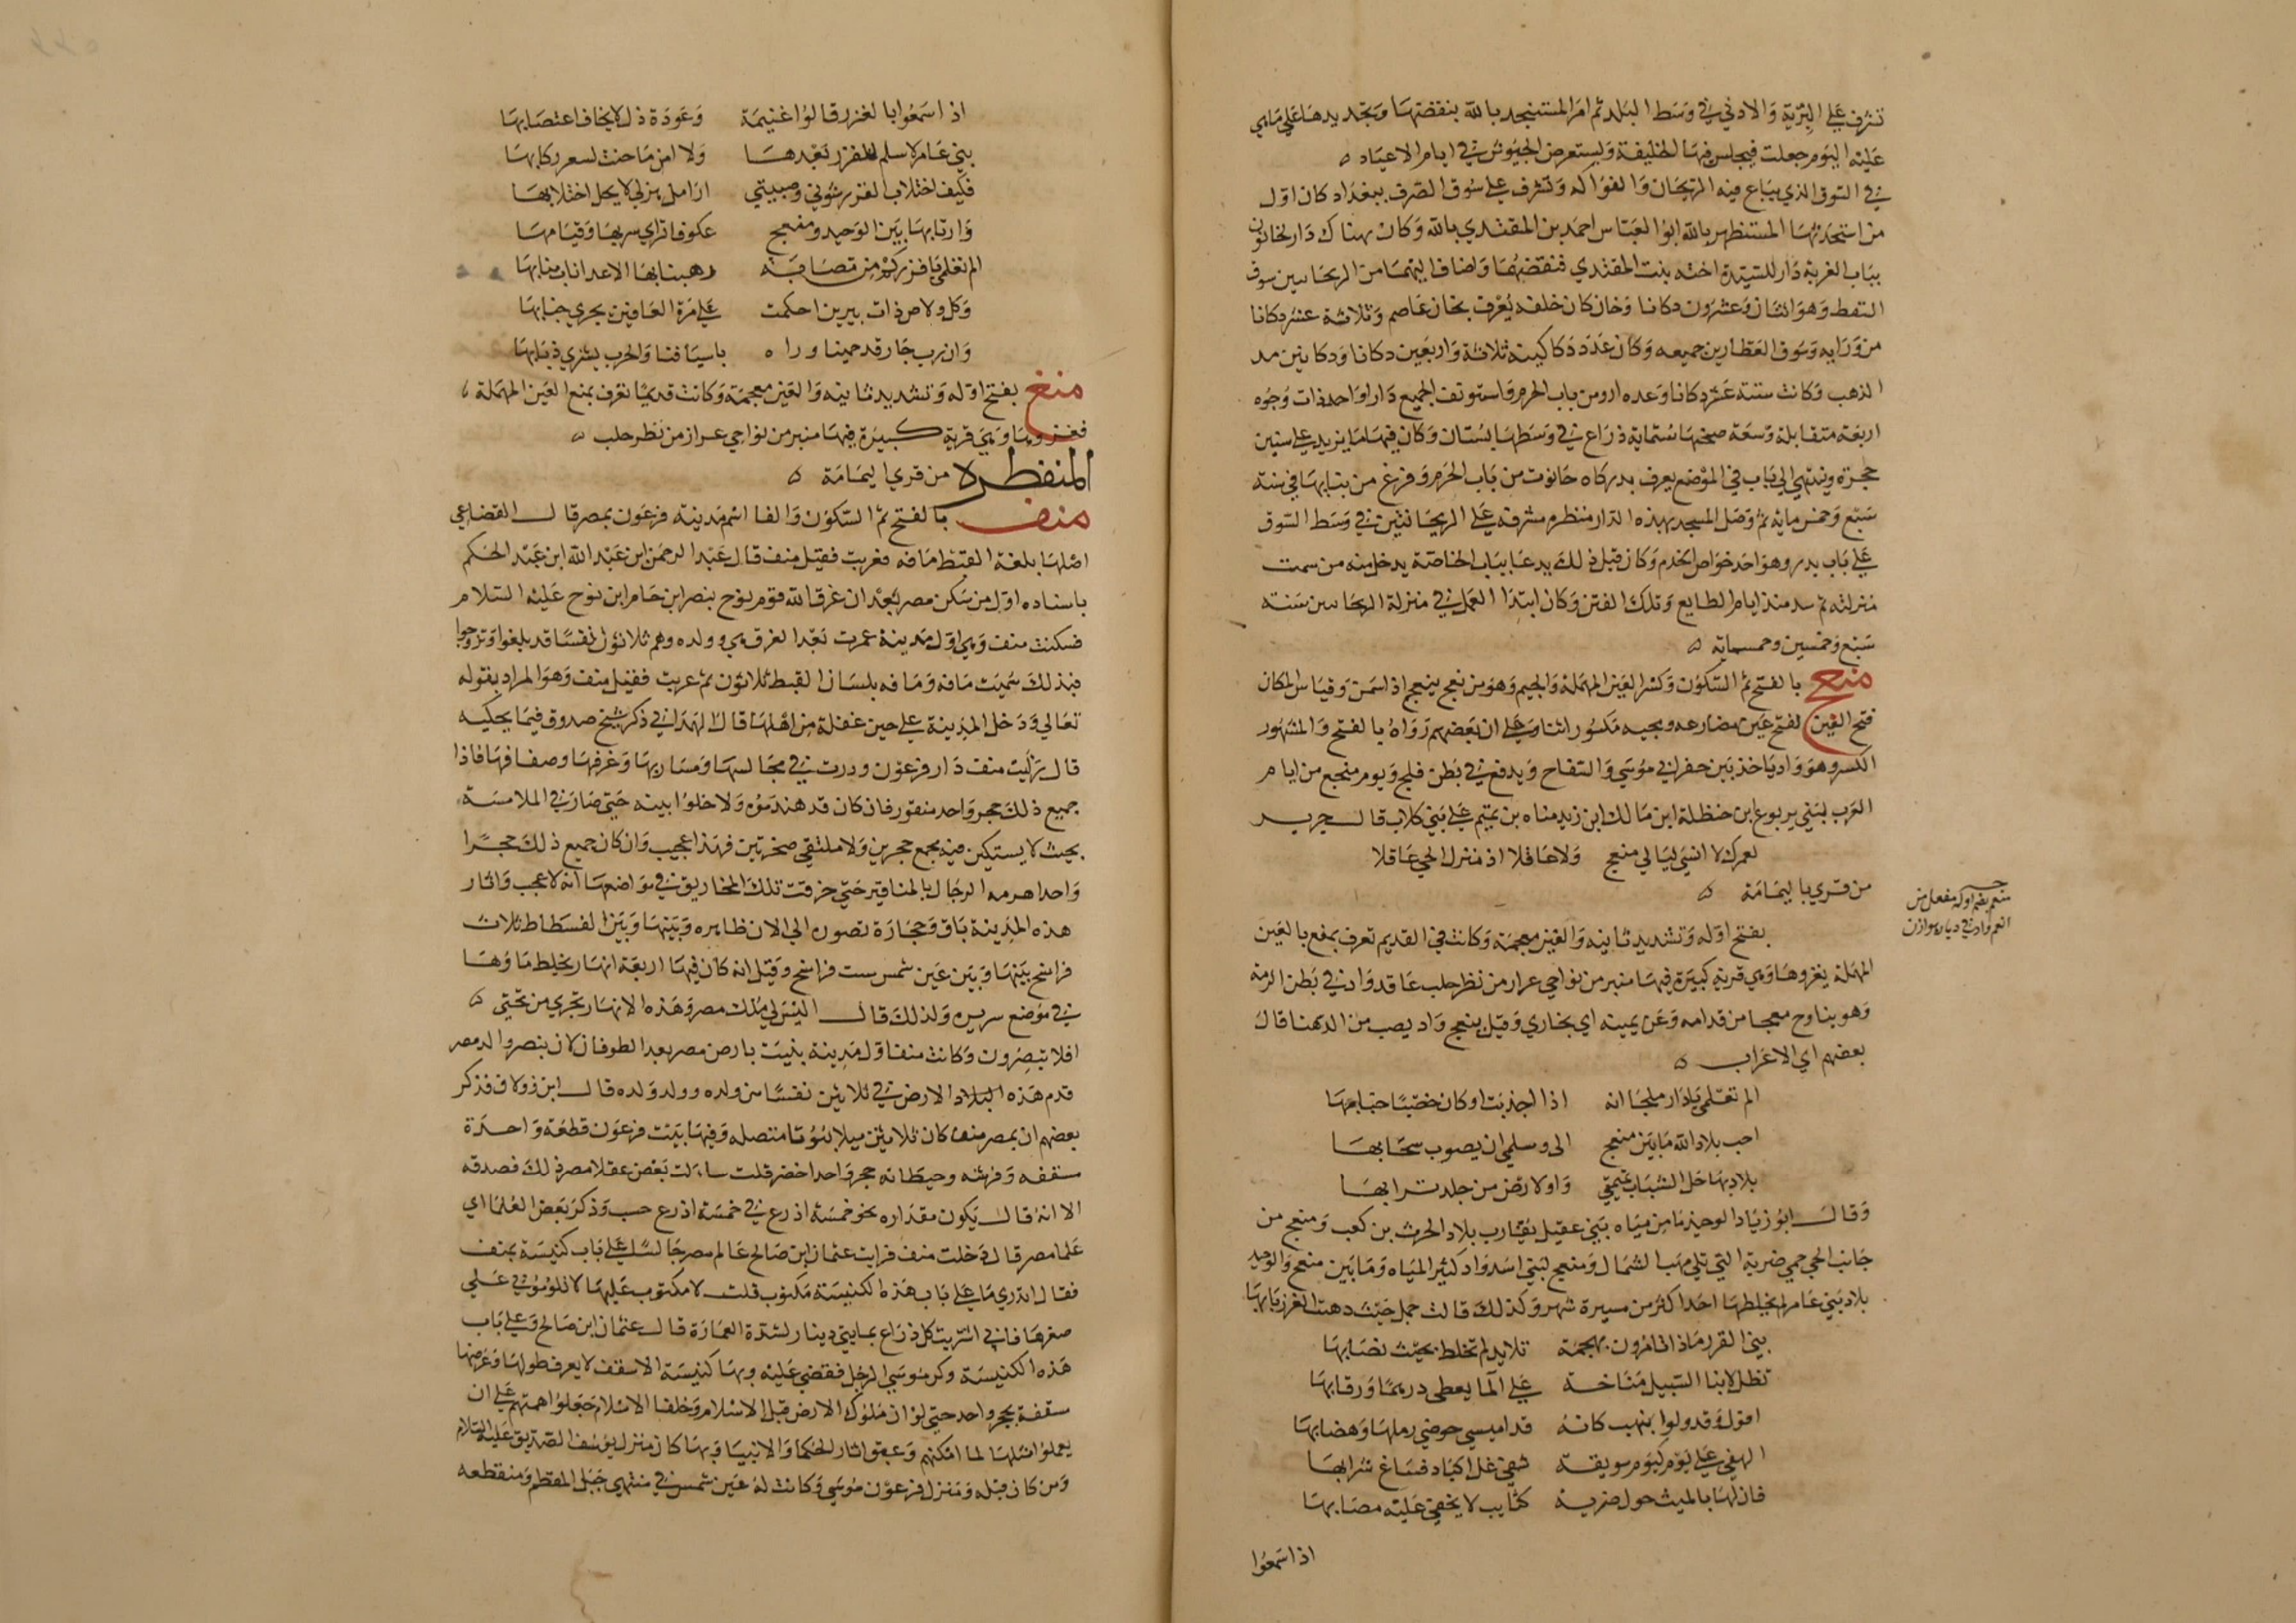 تشرف على البرية والادنى في وسط البلد ثم امر المستنجد بالله بنقضها وتجديدها على ما هي
عليه اليوم جعلت فيجلس فيها الخليفة ويستعرض الجيوش في ايام الاعياد ه
في السوق الذي يباع فيه الريحان والفواكه وتشرف على سوق الصرف ببغداد كان اول
من استحدثها المستظهر بالله ابو العباس احمد بن المقتدي بالله وكان هناك دار لخاتون
بباب الغربة دار للسيدة اخته بنت المقتدي فنقضها واضاف اليها من الريحانيين سوق
السقط وهو اثنان وعشرون دكانا وخان كان خلفه يعرف بخان عاصم وثلاثة عشر دكانا
من ورايه وسوق العطارين جميعه وكان عدد دكاكينه ثلاثة واربعين دكانا ودكانين مد
الذهب وكانت ستة عشر دكانا وعده ادر من باب الحرم واستونف الجميع دارا واحدة ذات وجوه
اربعة متقابلة وسعة صحنها ستماية ذراع في وسطها بستان وكان فيها ما يزيد على ستين
حجرة وينتهي الى باب في الموضع يعرف بدركاه خاتون من باب الحرم وفرغ من بنايها في سنة
سبع وخمس مايه ثم وصل المسجد بهذه الدار منظره مشرفة على الريحانيين في وسط السوق
على باب بدر وهو احد خواص الخدم وكان قبل ذلك يدعا بباب الخاصة يدخل منه من سمت
منزلته ثم سد منذ ايام الطايع وتلك الفتن وكان ابتدا العمل في منزلة الريحانيين سنه
سبع وخمسين وخمسمايه ه
منعج بالفتح ثم السكون وكسر العين المهملة والجيم وهو من نعج ينعج اذا سمن وقياس المكان
فتح العين لفتح عين مضارعه ومجيه مكسورا شاذ على ان بعضهم رواه بالفتح والمشهور
الكسر وهو واد ياخذ بين حفر ابي موسى والنباج ويدفع في بطن فلج ويوم منعج من ايام
العرب لبني يربوع ابن حنظلة ابن مالك ابن زيد مناه بن تميم على بني كلاب قال جرير
لعمرك لا انسى ليالي منعج ولا عاقلا اذ منزل الحي عاقلا
من قرى باليمامة ه
منعم بضم اوله مفعل من
انعم واد في ديار هوازن
بفتح اوله وتشديد ثانيه والغين معجمة وكانت في القديم تعرف بمنع بالعين
المهملة يغزوها وهي قرية كبيرة فيها منبر من نواحي عزاز من نظر حلب عاقد واد في بطن الرمه
وهو يناوح منعجا من قدامه وعن يمينه اي يحاذي وقيل منعج واد يصب من الدهنا قال
بعضهم اي الاعراب ه
الم تعلمي يا دار ملجا انه اذا اجدبت او كان خصبا جنابها
احب بلاد الله ما بين منعج الى وسلمى ان يصوب سحابها
بلاد بها حل الشباب تميمتي واول ارض مس جلدي ترابها
وقال ابو زياد الوحيد ما من مياه بني عقيل يقارب بلاد الحرث بن كعب ومنعج من
جانب الحمى حمى ضرية التي تلي مهب الشمال ومنعج لبني اسد واد كثير المياه وما بين منعج والوحيد
بلاد بني عامر لم يخلطها احد اكثر من مسيرة شهر وكذلك قالت جمل حيث دهت الغزر بابها
بني الفزر ماذا تامرون بهجمة تلايد لم تخلط بحيث نصابها
تظل لابنا السبيل مناخة على الما يعطى درها ورقابها
اقول وقد ولوا بنهب كانه قداميس حوضى رملها وهضابها
الهفي على يوم كيوم سويقة شفى غل اكباد فساغ شرابها
فان لها بالميث حول ضرية كتايب لا يخفى عليه مصابها
اذا سمعوا
اذ اسمعوا بالغزر قالوا غنيمة وعودة ذل لا يخاف اغتصابها
بني عامر لا سلم للفزر بعدها ولا امن ما حنت لسفر ركابها
فكيف اختلاب الفزر شولي وصبيتي ارامل هزلى لا يحل اختلابها
واربابها بين الوحيد ومنعج عكوفا تراى سربها وقيامها
الم تعلمي يا فزر كم من مصابة رهبنا بها الاعدا ناب منابها
وكل ولاص ذات بيرين احكمت على مرة العافين يجري حبابها
وان رب جار قد حمينا وراه باسيافنا والحرب يشري ذبابها
منغ بفتح اوله وتشديد ثانيه والغين معجمة وكانت قديما تعرف بمنع العين المهملة
فغيروها وهي قرية كبيرة فيها منبر من نواحي عزاز من نظر حلب ه
المنفطرة من قرى اليمامة ه
منف بالفتح ثم السكون والفا اسم مدينة فرعون بمصر قال القضاعي
اصلها بلغة القبط مافه فعربت فقيل منف قال عبد الرحمن ابن عبد الله ابن عبد الحكم
باسناده اول من سكن مصر بعد ان غرق الله قوم نوح بنصر ابن حام ابن نوح عليه السلام
فسكنت منف وهي اول مدينة عمرت بعد الغرق هو وولده وهم ثلاثون نفسا قد بلغوا وتزوجوا
فبذلك سميت مافه ومافه بلسان القبط ثلاثون ثم عربت فقيل منف وهو المراد بقوله
تعالى ودخل المدينة على حين غفلة من اهلها قال الهمداني ذكر شيخ صدوق فيما يحكيه
قال رايت منف دار فرعون ودرت في مجالسها ومساربها وغرفها وصفافها فاذا
جميع ذلك حجر واحد منقور فان كان قد هندموه ولاحكوا بينه حتى صار في الملامسة
بحيث لا يستبين فيه مجمع حجرين ولا ملتقى صخرتين فهذا عجيب وان كان جميع ذلك حجرا
واحدا هرمه الرجال بالمناقير حتى خرقت تلك المخاريق في مواضعها انه لاعجب واثار
هذه المدينة باق وحجارة قصوره الى الان ظاهره وبينها وبين الفسطاط ثلاث
فراسخ بينها وبين عين شمس ست فراسخ وقيل انه كان فيها اربعة انهار يختلط ماوها
في موضع سريره ولذلك قال اليس لي ملك مصر وهذه الانهار تجري من تحتي ه
افلا تبصرون وكانت منف اول مدينة بنيت بارض مصر بعد الطوفان لان بنصر والد مصر
قدم هذه البلاد الارض في ثلاثين نفسا من ولده وولد ولده قال ابن زولاق فذكر
بعضهم ان بمصر منف كان ثلاثين ميلا بيوتا متصله وفيها بيت فرعون قطعة واحدة
سقفه وفرشه وحيطانه حجر واحد اخضر قلت سالت بعض عقلا مصر ذلك فصدقه
الا انه قال يكون مقداره نحو خمسة اذرع في خمسة اذرع حسب وذكر بعض العلما اي
علما مصر قال دخلت منف فرايت عثمان ابن صالح عالم مصر جالسا على باب كنيسة بمنف
فقال اتدري ما على باب هذه الكنيسة مكتوب قلت لا مكتوب عليها لا تلوموني على
صغرها فاني اشتريت كل ذراع بمايتي دينار لشدة العمارة قال عثمان ابن صالح وعلى باب
هذه الكنيسة وكز موسى الرجل فقضى عليه وبها كنيسة الاسقف لا يعرف طولها وعرضها
سقفة بحجر واحد حتى لو ان ملوك الارض قبل الاسلام وخلفا الاسلام جعلوا همتهم على ان
يعملوا مثلها لما امكنهم وعبق اثار الحكما والانبيا وبها كان منزل يوسف الصديق عليه السلام
ومن كان قبله ومنزل فرعون موسى وكانت له عين شمس في منتهى جبل المقطم ومنقطعه